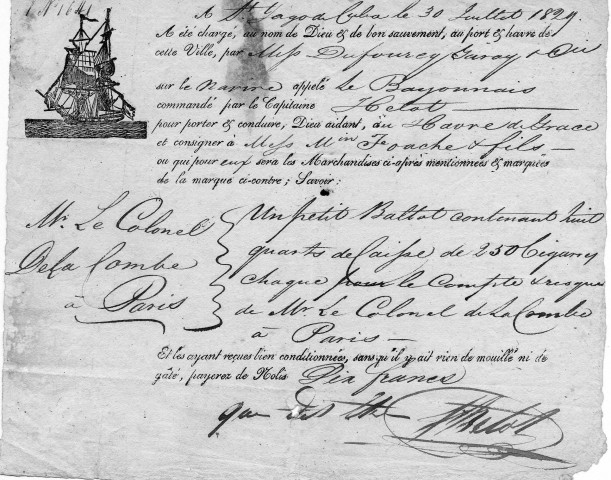 N° 1641
A St Yago de Cuba le 30 Juillet 1829.
A été chargé, au nom de Dieu & de bon sauvement, au port & havre de
cette Ville, par Mess Dufourcq Garay & Cie
sur le Navire appelé le Bayonnais
commandé par le Capitaine Helot
pour porter & conduire, Dieu aidant, au Havre de Grace
et consigner à Mess Min Foache & fils
ou qui pour eux sera les Marchandises ci-après mentionnées & marquées
de la marque ci-contre; Savoir:
Mr. Le Colonel
De la Combe
à Paris
Un petit Ballot contenant huit
quarts de Caisse de 250 Cigarres
chaque pour le Compte & risque
de Mr. Le Colonel de La Combe
à Paris
Et les ayant reçues bien conditionnées, sans qu'il y ait rien de mouillé ni de
gâté, payerez de Nolis Dix francs
que dit
Helot